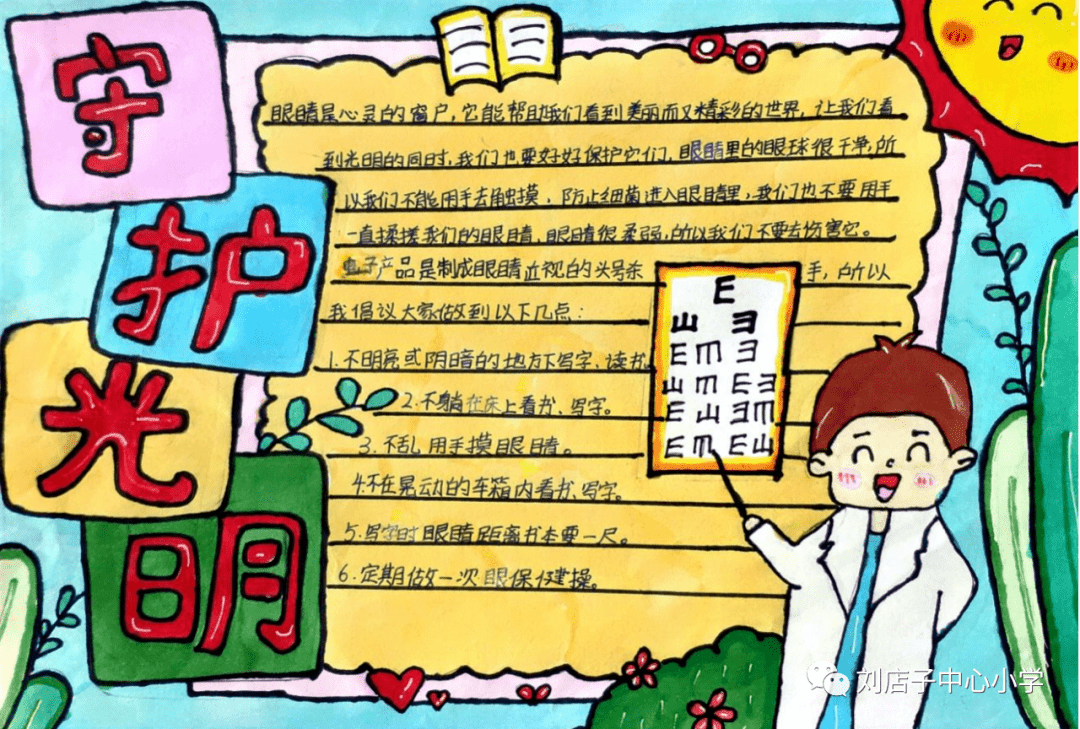 守
护
光
明
眼睛是心灵的窗户，它能帮助我们看到美丽而又精彩的世界，让我们看
到光明的同时，我们也要好好保护它们，眼睛里的眼球很干净，所
以我们不能用手去触摸，防止细菌进入眼睛里，我们也不要用手
一直揉搓我们的眼睛，眼睛很柔弱，所以我们不要去伤害它。
电子产品是制成眼睛近视的头号杀手，所以
我倡议大家做到以下几点：
1.不明亮或阴暗的地方下写字、读书
2.不躺在床上看书、写字。
3.不乱用手摸眼睛。
4.不在晃动的车箱内看书、写字。
5.写字时眼睛距离书本要一尺。
6.定期做一次眼保健操。
E
山 ヨ
E m ヨ
山 m E ヨ
E 山 ヨ m
E m E 山
刘店子中心小学